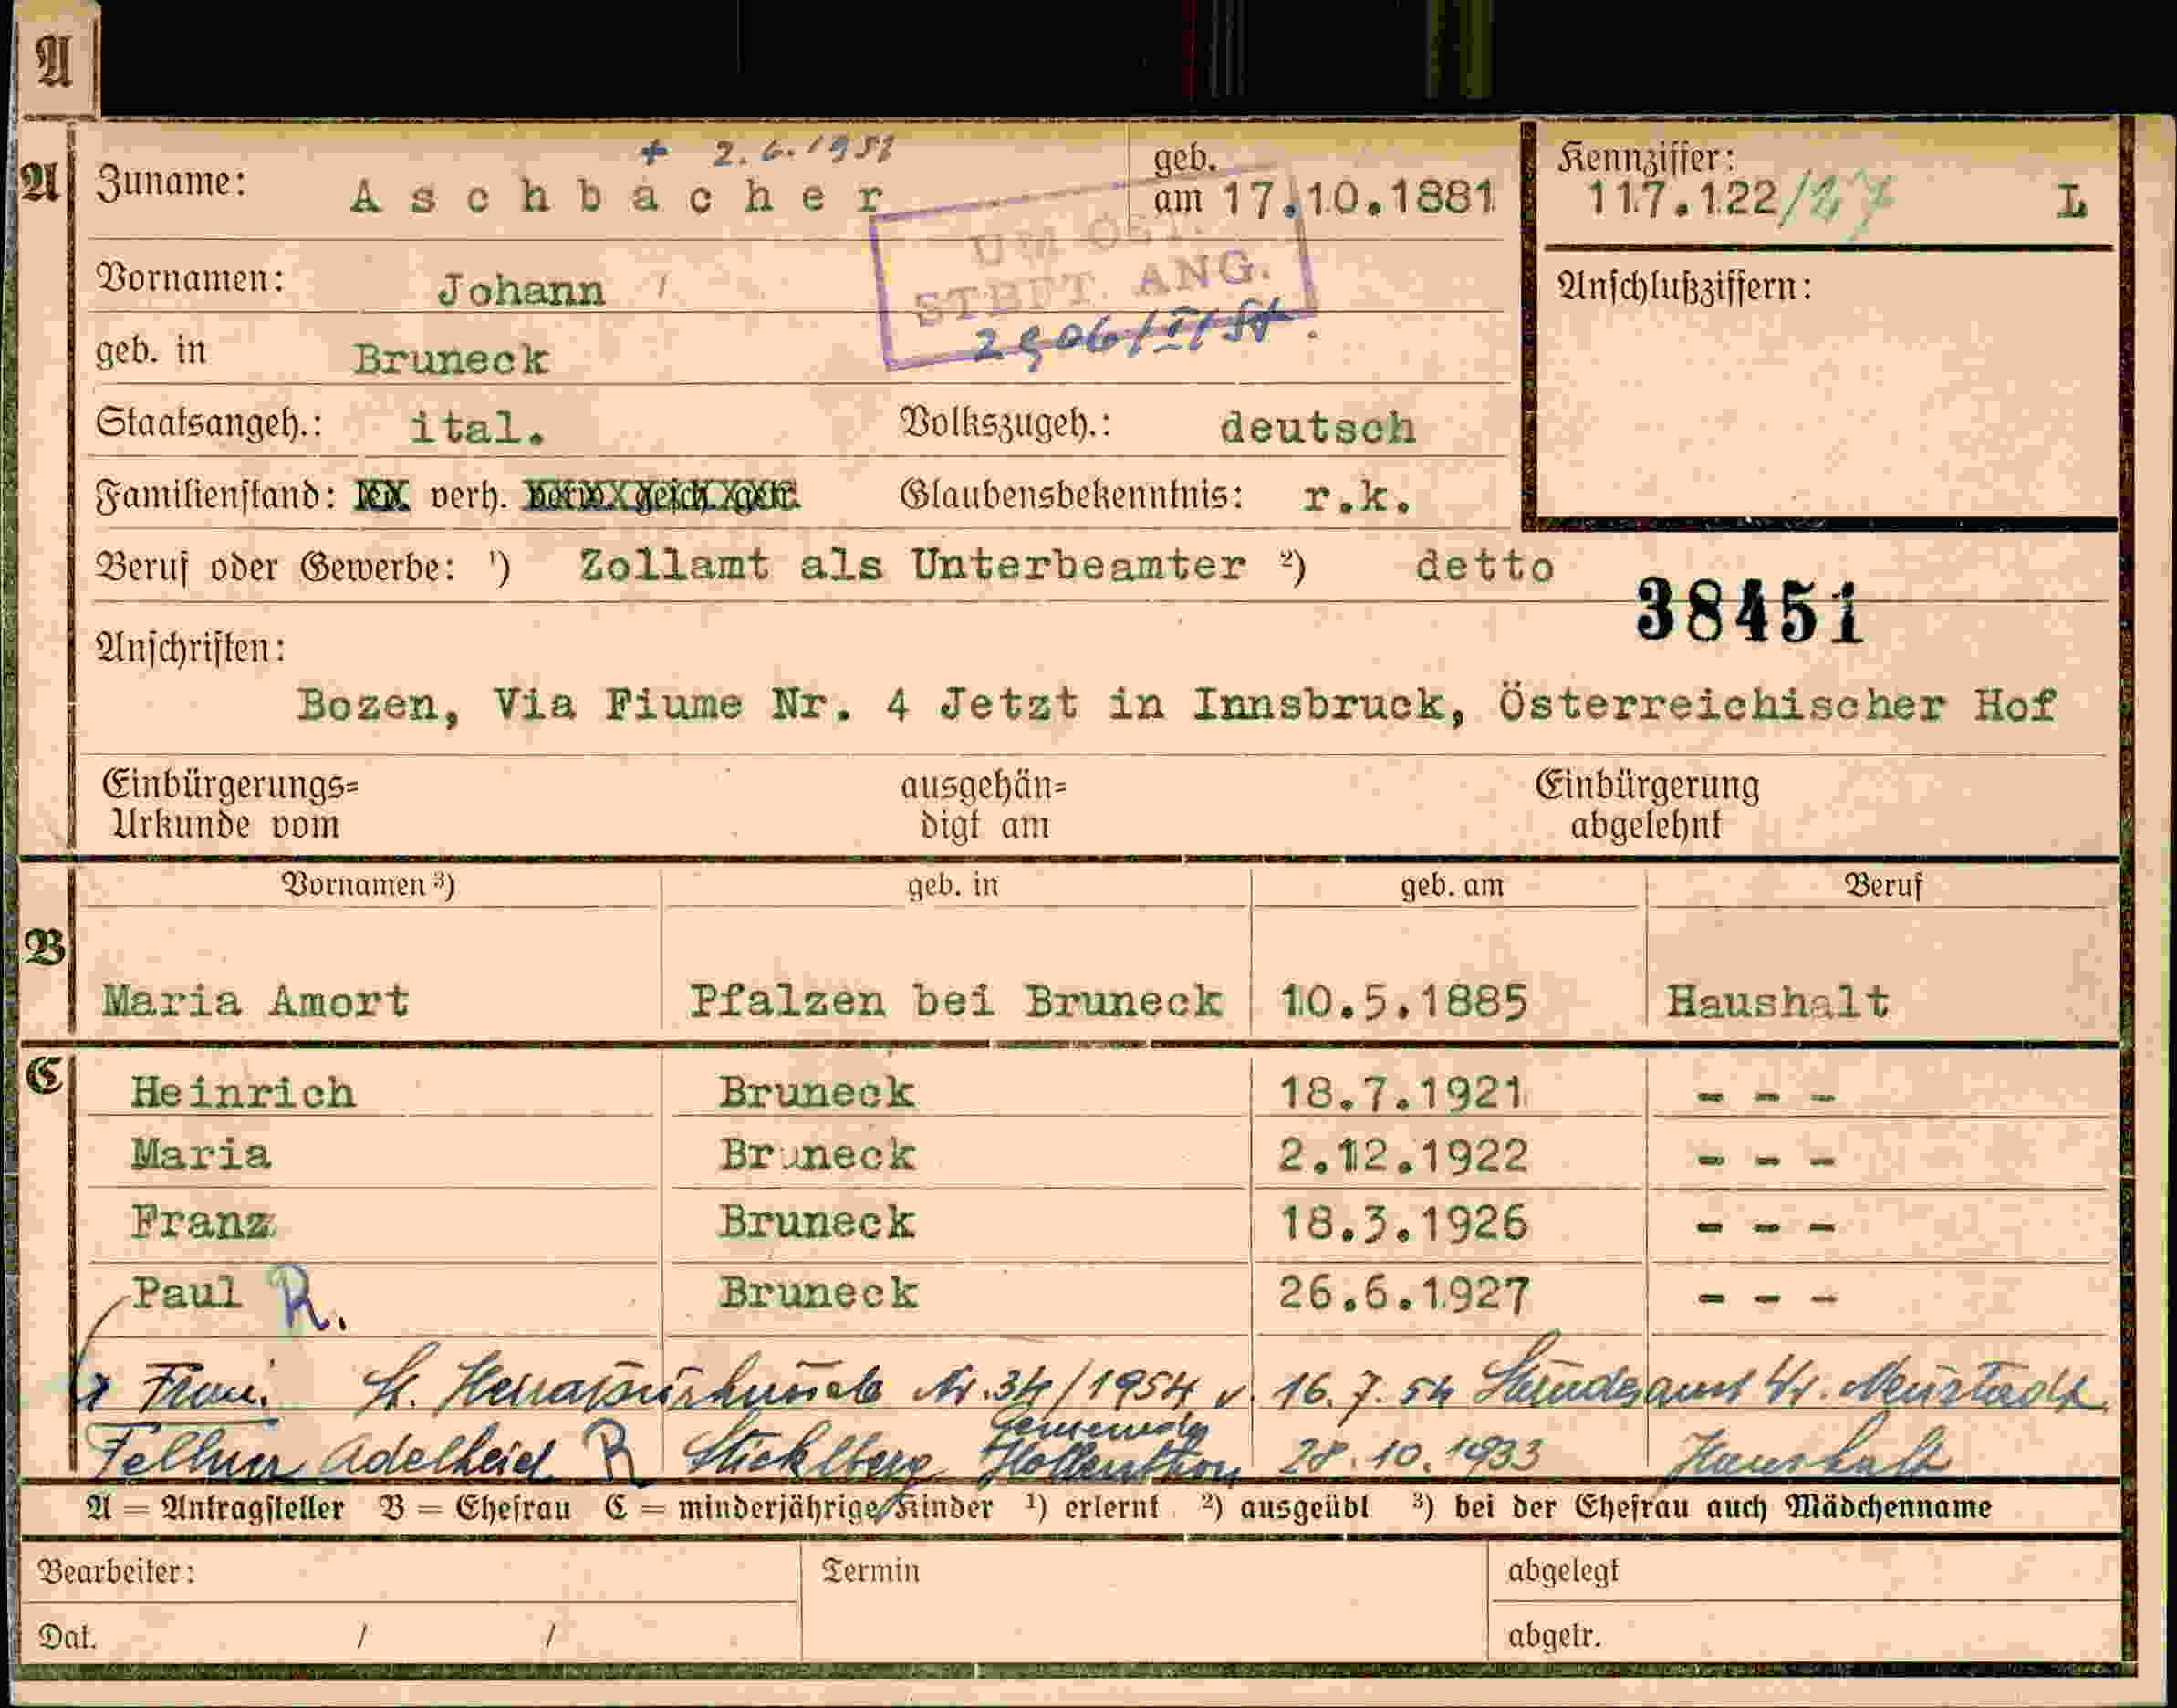 A
+ 2.6.1951
A Zuname: Aschbacher geb. am 17.10.1881 Kennziffer: 117.122/ L
UM ÖST.
STBFT. ANG.
Vornamen: Johann Anschlußziffern:
geb. in Bruneck
Staatsangeh.: ital. Volkszugeh.: deutsch
Familienstand: led. verh. verw. gesch. getr. Glaubensbekenntnis: r.k.
Beruf oder Gewerbe: ¹) Zollamt als Unterbeamter ²) detto
38451
Anschriften:
Bozen, Via Fiume Nr. 4 Jetzt in Innsbruck, Österreichischer Hof
Einbürgerungs= ausgehän= Einbürgerung
Urkunde vom digt am abgelehnt
Vornamen ³) geb. in geb. am Beruf
B
Maria Amort Pfalzen bei Bruneck 10.5.1885 Haushalt
C
Heinrich Bruneck 18.7.1921 - - -
Maria Bruneck 2.12.1922 - - -
Franz Bruneck 18.3.1926 - - -
Paul R. Bruneck 26.6.1927 - - -
lt. Heiratsurkunde Nr. 34/1954 v. 16.7.54 Standesamt Wr. Neustadt
Gemeinde
Fellner Adelheid R Stickelberg Hollenthon 28.10.1933 Haushalt
A = Antragsteller B = Ehefrau C = minderjährige Kinder ¹) erlernt ²) ausgeübt ³) bei der Ehefrau auch Mädchenname
Bearbeiter: Termin abgelegt
Dat. / / abgetr.